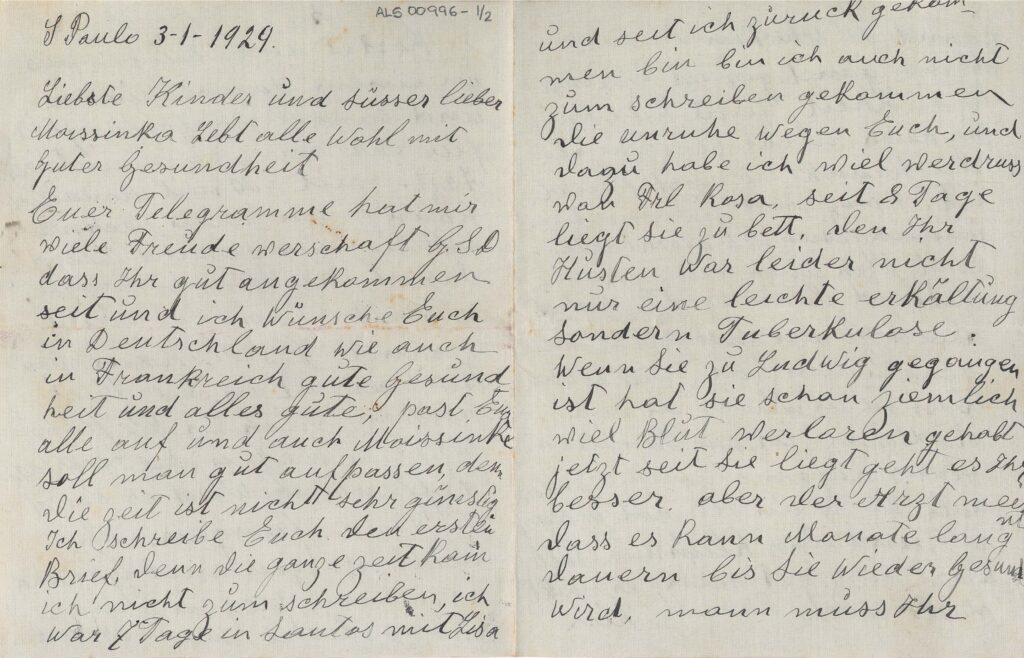 ALS 00996-1/2
S Paulo 3-1-1929.
Liebste Kinder und süsser lieber
Moissinka Lebt alle Wohl mit
guter Gesundheit
Euer Telegramme hat mir
viele Freude werschaft G.S.D
dass Ihr gut angekommen
seit und ich Wünsche Euch
in Deutschland wie auch
in Frankreich gute Gesund
heit und alles gute, past Euch
alle auf und auch Moissinke
soll man gut aufpassen, denn
die zeit ist nicht sehr günstig
Ich schreibe Euch den ersten
Brief, denn die ganze zeit kam
ich nicht zum schreiben, ich
War 7 Tage in Santos mit Lisa
und seit ich zurück gekom-
men bin bin ich auch nicht
zum schreiben gekommen
die unruhe wegen Euch, und
dazu habe ich viel werdruss
von Frl Rosa, seit 8 Tage
liegt Sie zu bett, den Ihr
Husten War leider nicht
nur eine leichte erkältung
sondern Tuberkulose.
Wenn Sie zu Ludwig gegangen
ist hat sie schon ziemlich
viel Blut werloren gehabt
jetzt seit Sie liegt geht es Ihr
besser, aber der Arzt meint
dass es kann Monate lang
dauern bis Sie wieder Gesund
wird, mann muss Ihr